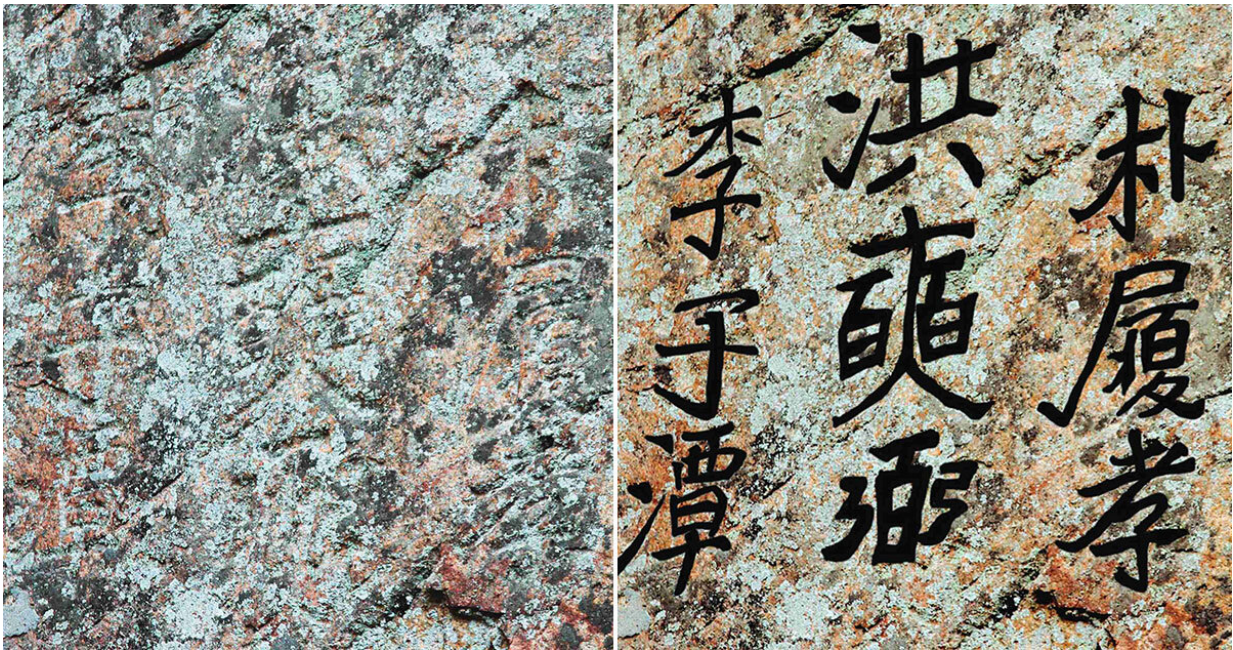 朴履孝
洪奭弼
李子潭